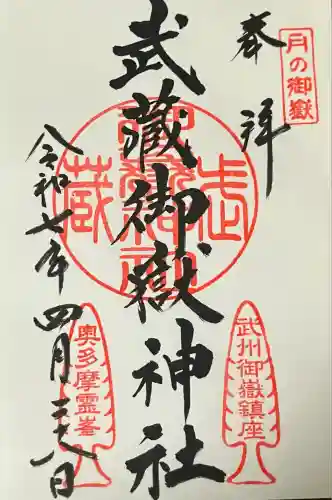 月の御嶽
奉拝
武州御嶽鎮座
武蔵御嶽神社
武蔵御嶽神社
令和七年四月二十八日
奥多摩霊峯